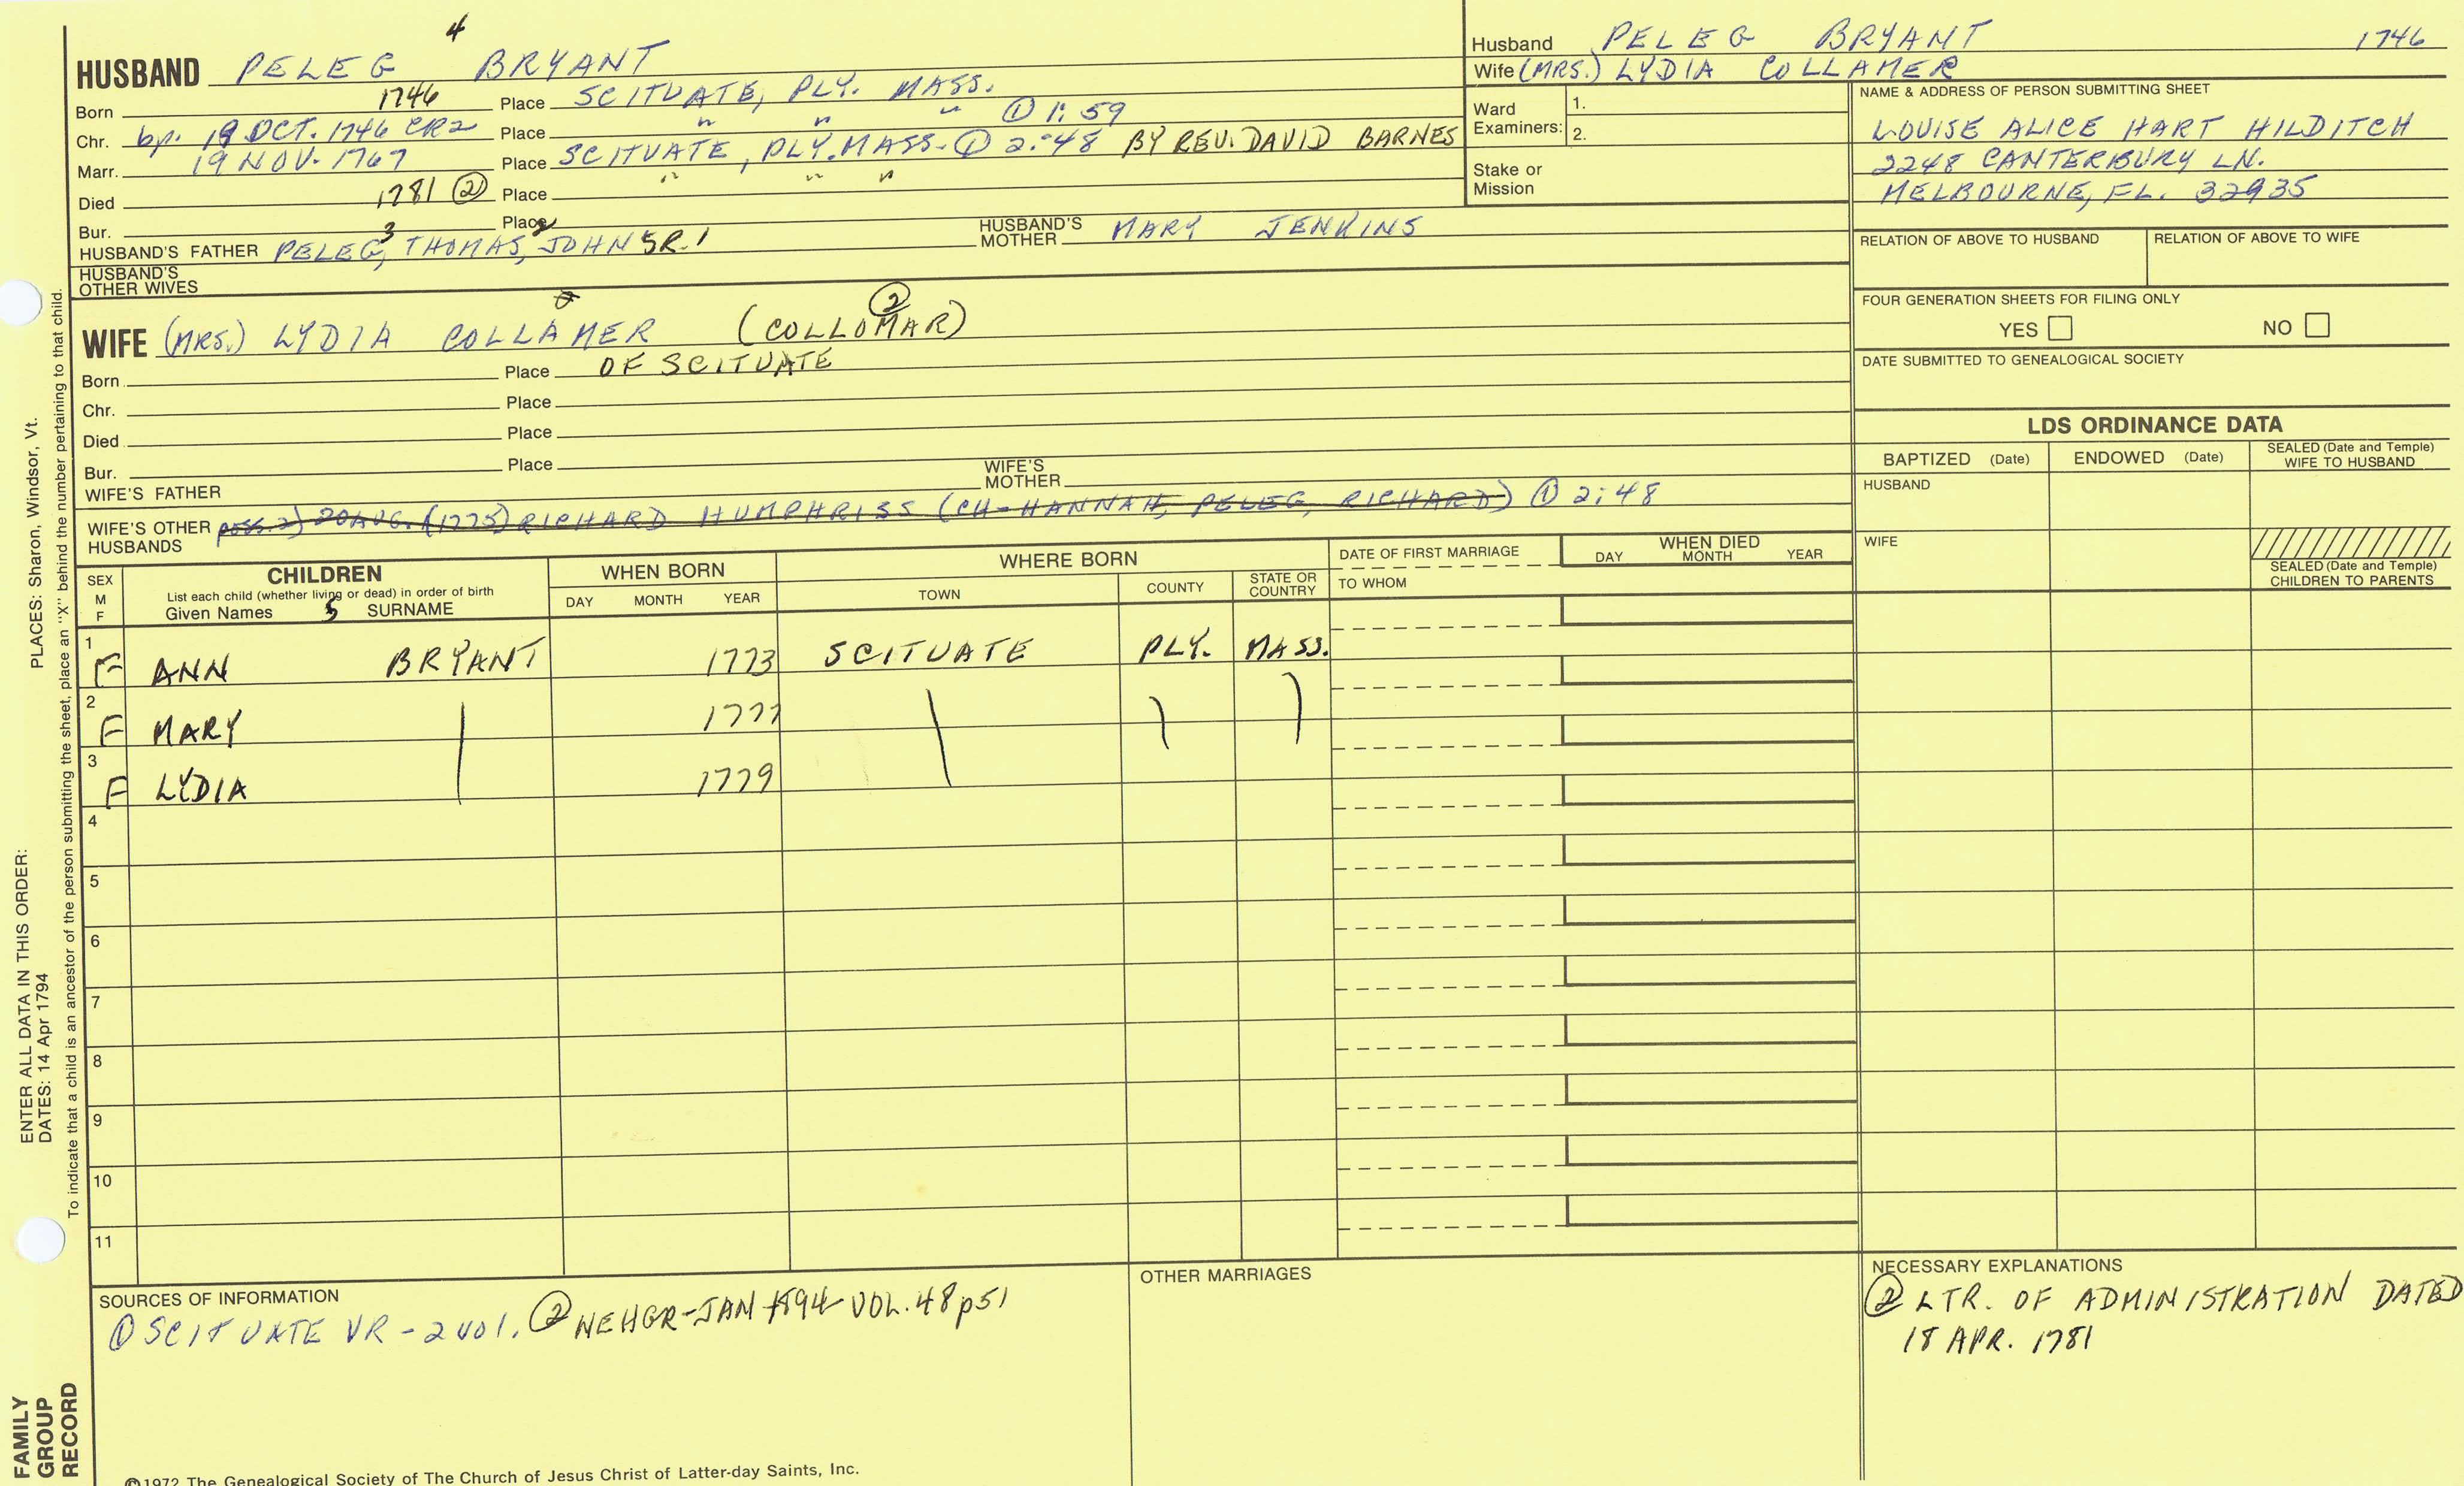 4
HUSBAND PELEG BRYANT
Born 1746 Place SCITUATE, PLY. MASS.
Chr. bp. 19 OCT. 1746 CR2 Place " " " ① 1:59
Marr. 19 NOV. 1767 Place SCITUATE, PLY. MASS. ① 2:48 BY REV. DAVID BARNES
Died 1781 ② Place " " "
Bur. Place
3 2
HUSBAND'S FATHER PELEG, THOMAS, JOHN SR. 1 HUSBAND'S MOTHER MARY JENKINS
HUSBAND'S
OTHER WIVES
②
WIFE (MRS.) LYDIA COLLAMER (COLLOMAR)
Born Place OF SCITUATE
Chr. Place
Died Place
Bur. Place
WIFE'S FATHER WIFE'S MOTHER
WIFE'S OTHER HUSBANDS poss. 2) 20 AUG. (1775) RICHARD HUMPHRISS (CH-HANNAH, PELEG, RICHARD) ① 2:48
Husband PELEG BRYANT 1746
Wife (MRS.) LYDIA COLLAMER
Ward
Examiners: 1.
2.
Stake or
Mission
NAME & ADDRESS OF PERSON SUBMITTING SHEET
LOUISE ALICE HART HILDITCH
2248 CANTERBURY LN.
MELBOURNE, FL. 32935
RELATION OF ABOVE TO HUSBAND RELATION OF ABOVE TO WIFE
FOUR GENERATION SHEETS FOR FILING ONLY
YES NO
DATE SUBMITTED TO GENEALOGICAL SOCIETY
LDS ORDINANCE DATA
BAPTIZED (Date) ENDOWED (Date) SEALED (Date and Temple)
WIFE TO HUSBAND
HUSBAND
WIFE
SEALED (Date and Temple)
CHILDREN TO PARENTS
SEX
M
F
CHILDREN
List each child (whether living or dead) in order of birth
Given Names 5 SURNAME
WHEN BORN
DAY MONTH YEAR
WHERE BORN
TOWN COUNTY STATE OR
COUNTRY
DATE OF FIRST MARRIAGE
TO WHOM
WHEN DIED
DAY MONTH YEAR
1
F ANN BRYANT 1773 SCITUATE PLY. MASS.
2
F MARY 1777
3
F LYDIA 1779
4
5
6
7
8
9
10
11
SOURCES OF INFORMATION
① SCITUATE VR - 2 VOL. ② NEHGR-JAN 1894 VOL. 48 p51
OTHER MARRIAGES
NECESSARY EXPLANATIONS
② LTR. OF ADMINISTRATION DATED
18 APR. 1781
©1972 The Genealogical Society of The Church of Jesus Christ of Latter-day Saints, Inc.
ENTER ALL DATA IN THIS ORDER: PLACES: Sharon, Windsor, Vt.
DATES: 14 Apr 1794
To indicate that a child is an ancestor of the person submitting the sheet, place an "X" behind the number pertaining to that child.
FAMILY
GROUP
RECORD